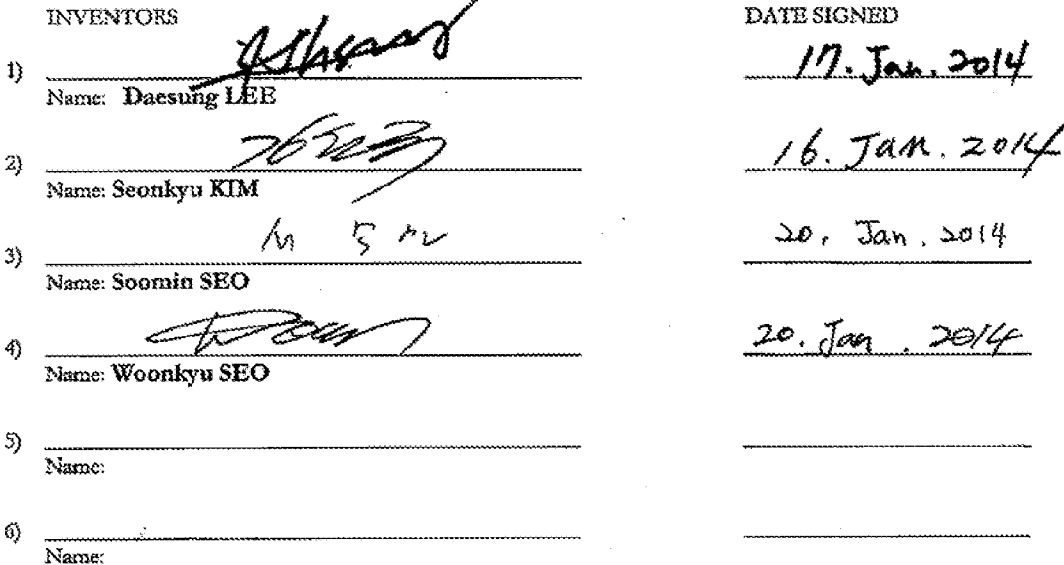 INVENTORS DATE SIGNED
1) 17. Jan. 2014
Name: Daesung LEE
2) 16. Jan. 2014
Name: Seonkyu KIM
3) 20. Jan. 2014
Name: Soomin SEO
4) 20. Jan. 2014
Name: Woonkyu SEO
5)
Name:
6)
Name: